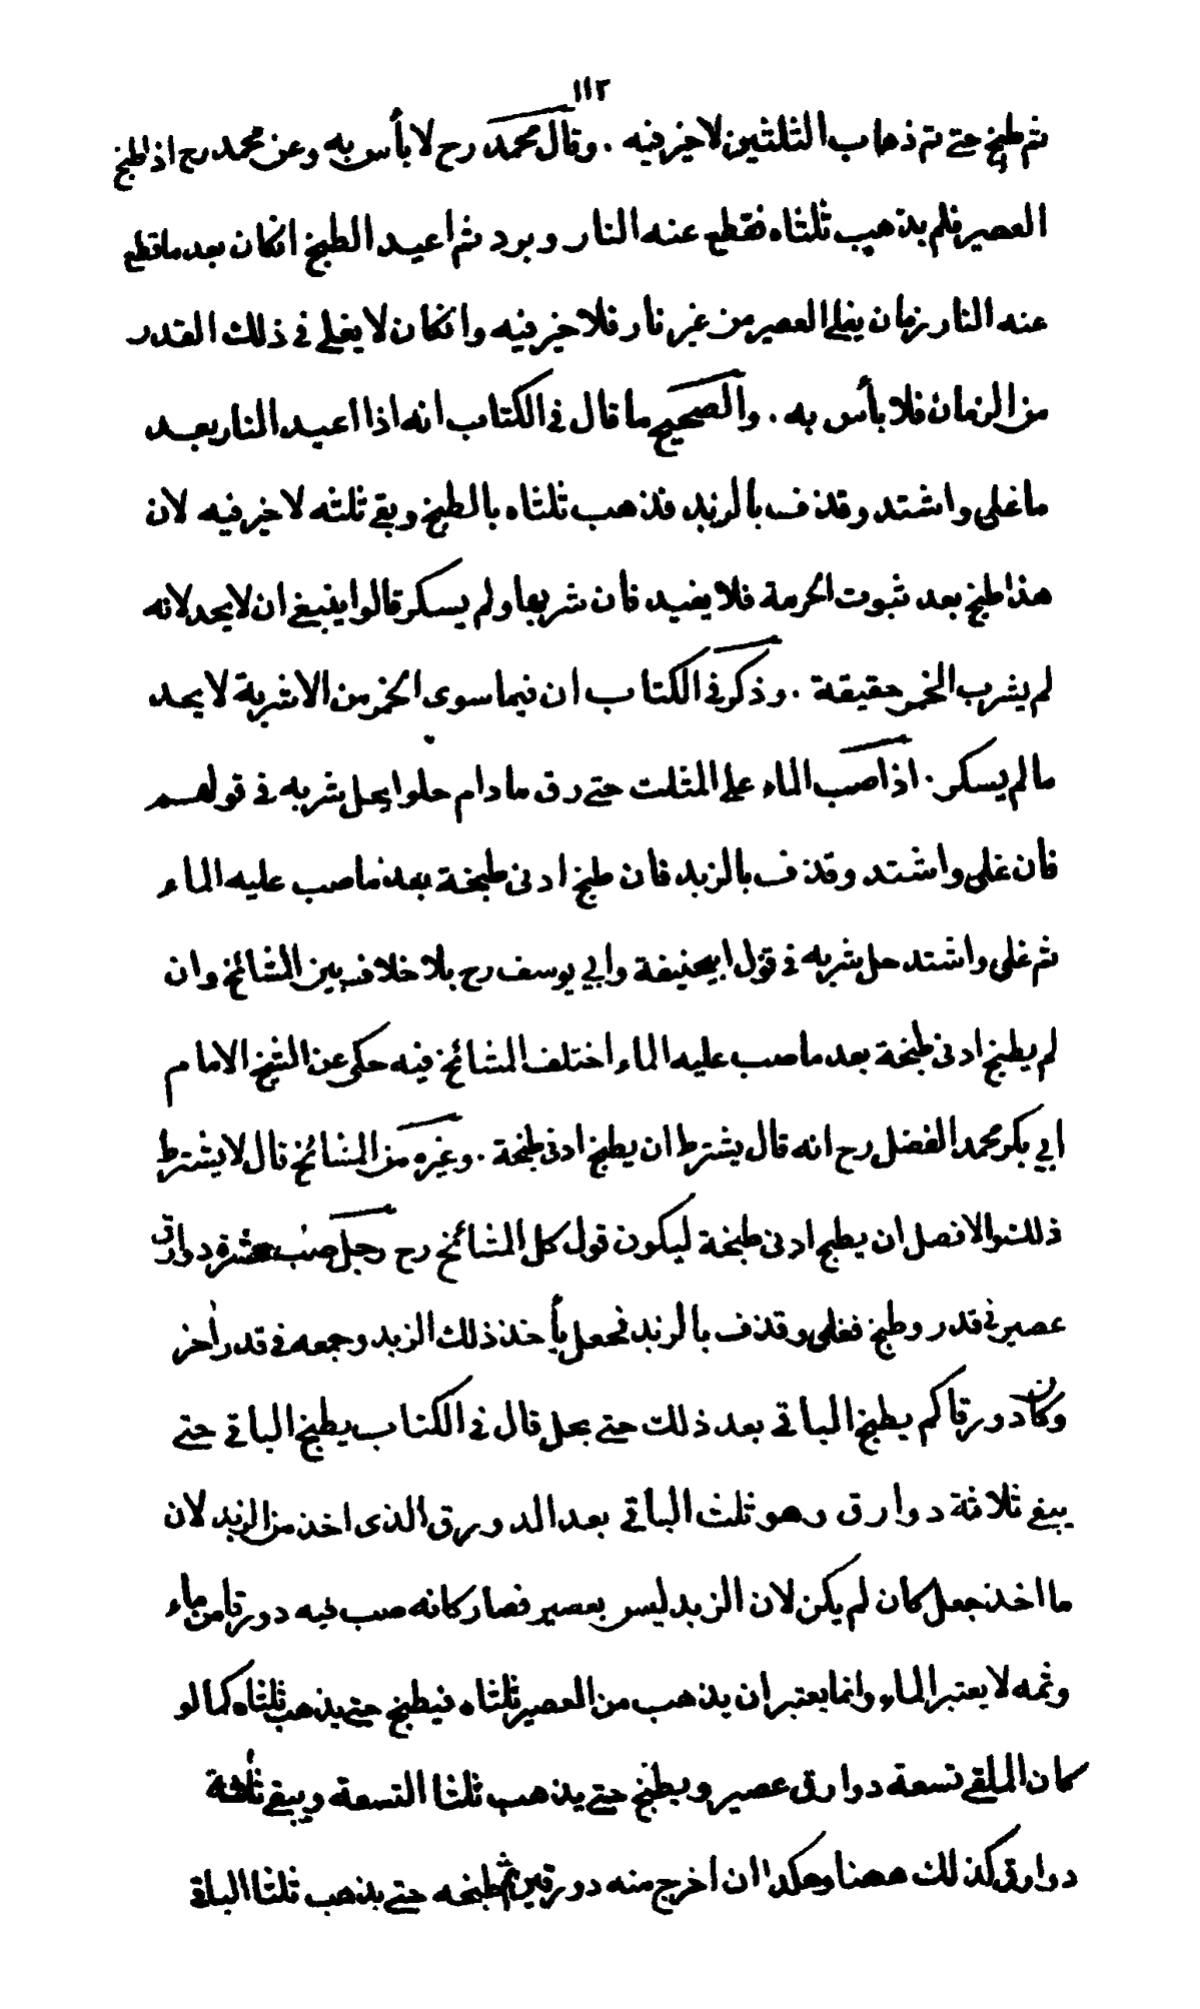 ١١٢
ثم طبخ حتى تم ذهاب الثلثين لا خير فيه . وقال محمد رح لا بأس به وعن محمد رح اذا طبخ
العصير فلم يذهب ثلثاه فقطع عنه النار وبرد ثم اعيد الطبخ انكان بعد ما قطع
عنه النار زمان يغلي العصير من غير نار فلا خير فيه وانكان لا يغلي في ذلك القدر
من الزمان فلا بأس به . والصحيح ما قال في الكتاب انه اذا اعيد النار بعد
ما غلى واشتد وقذف بالزبد فذهب ثلثاه بالطبخ وبقي ثلثه لا خير فيه لان
هذا طبخ بعد ثبوت الحرمة فلا يفيد فان شربها ولم يسكر قالوا ينبغي ان لا يحد لانه
لم يشرب الخمر حقيقة . وذكر في الكتاب ان فيما سوى الخمر من الاشربة لا يحد
ما لم يسكر . اذا صب الماء على المثلث حتى رق ما دام حلوا يحل شربه في قولهم
فان غلى واشتد وقذف بالزبد فان طبخ ادنى طبخة بعد ما صب عليه الماء
ثم غلى واشتد حل شربه في قول ابيحنيفة وابي يوسف رح بلا خلاف بين المشائخ وان
لم يطبخ ادنى طبخة بعد ما صب عليه الماء اختلف المشائخ فيه حكى عن الشيخ الامام
ابي بكر محمد الفضل رح انه قال يشترط ان يطبخ ادنى طبخة . وغيره من المشائخ قال لا يشترط
ذلك والافضل ان يطبخ ادنى طبخة ليكون قول كل المشائخ رح رجل صب عشرة دوارق
عصير في قدر وطبخ فغلى وقذف بالزبد فجعل يأخذ ذلك الزبد وجمعه في قدر اخر
وكان دورقا كم يطبخ الباقي بعد ذلك حتى يحل قال في الكتاب يطبخ الباقي حتى
يبقى ثلاثة دوارق وهو ثلث الباقي بعد الدورق الذى اخذ من الزبد لان
ما اخذ جعل كان لم يكن لان الزبد ليس بعصير فصار كانه صب فيه دورقا من ماء
وثمه لا يعتبر الماء وانما يعتبر ان يذهب من العصير ثلثاه فيطبخ حتى يذهب ثلثاه كما لو
كان الملقى تسعة دوارق عصير ويطبخ حتى يذهب ثلثا التسعة ويبقى ثلثة
دوارق كذلك ههنا وهكذا ان اخرج منه دورقين ثم طبخه حتى يذهب ثلثا الباقي